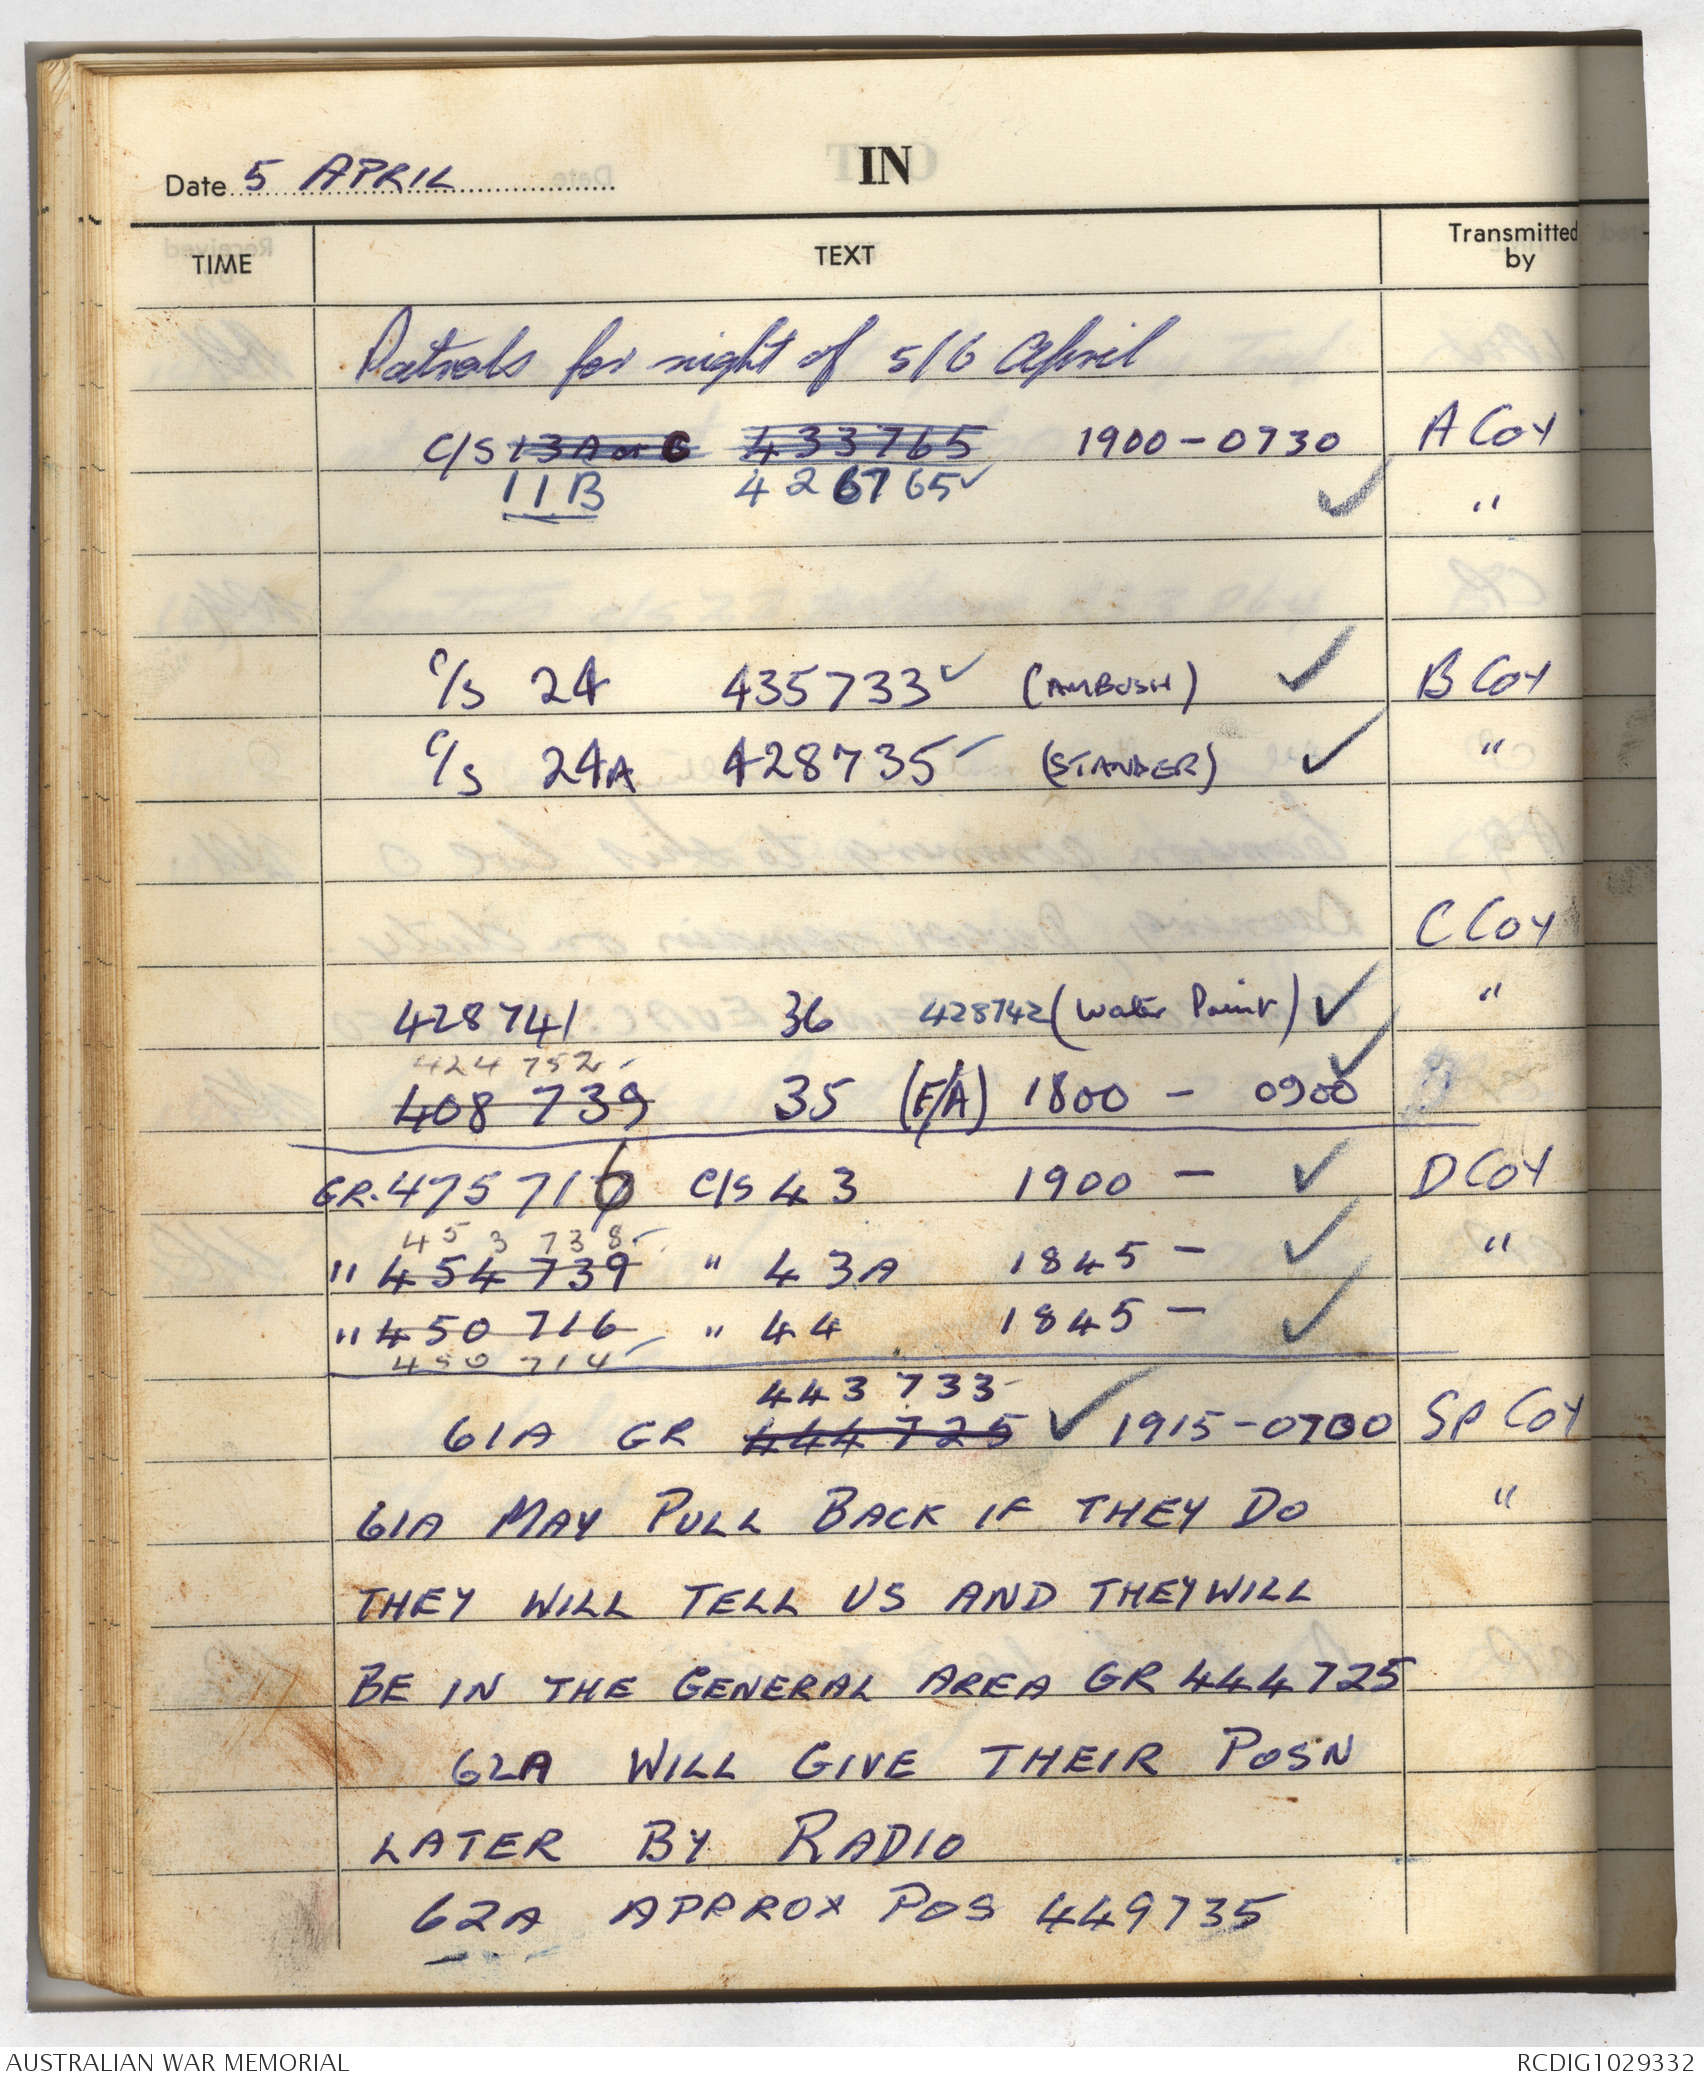 Date 5 APRIL
IN
TIME
TEXT
Transmitted by
Patrols for night of 5/6 April
C/S 13A or C 433765 1900-0730 A Coy
11B 426765 ✓ ✓ "
C/S 24 435733 ✓ (AMBUSH) ✓ B Coy
C/S 24A 428735 (STANDER) ✓ "
C Coy
428741 36 428742 (Water Point) ✓ "
424 752
408 739 35 (F/A) 1800 - 0900 ✓
GR. 475 716 C/S 43 1900 - ✓ D Coy
453 738
" 454 739 " 43A 1845 - ✓ "
" 450 716 " 44 1845 - ✓
450 714
443 733
61A GR 444725 ✓ 1915-0730 SP Coy
61A MAY PULL BACK IF THEY DO "
THEY WILL TELL US AND THEY WILL
BE IN THE GENERAL AREA GR 444725
62A WILL GIVE THEIR POSN
LATER BY RADIO
62A APPROX POS 449735
AUSTRALIAN WAR MEMORIAL
RCDIG1029332